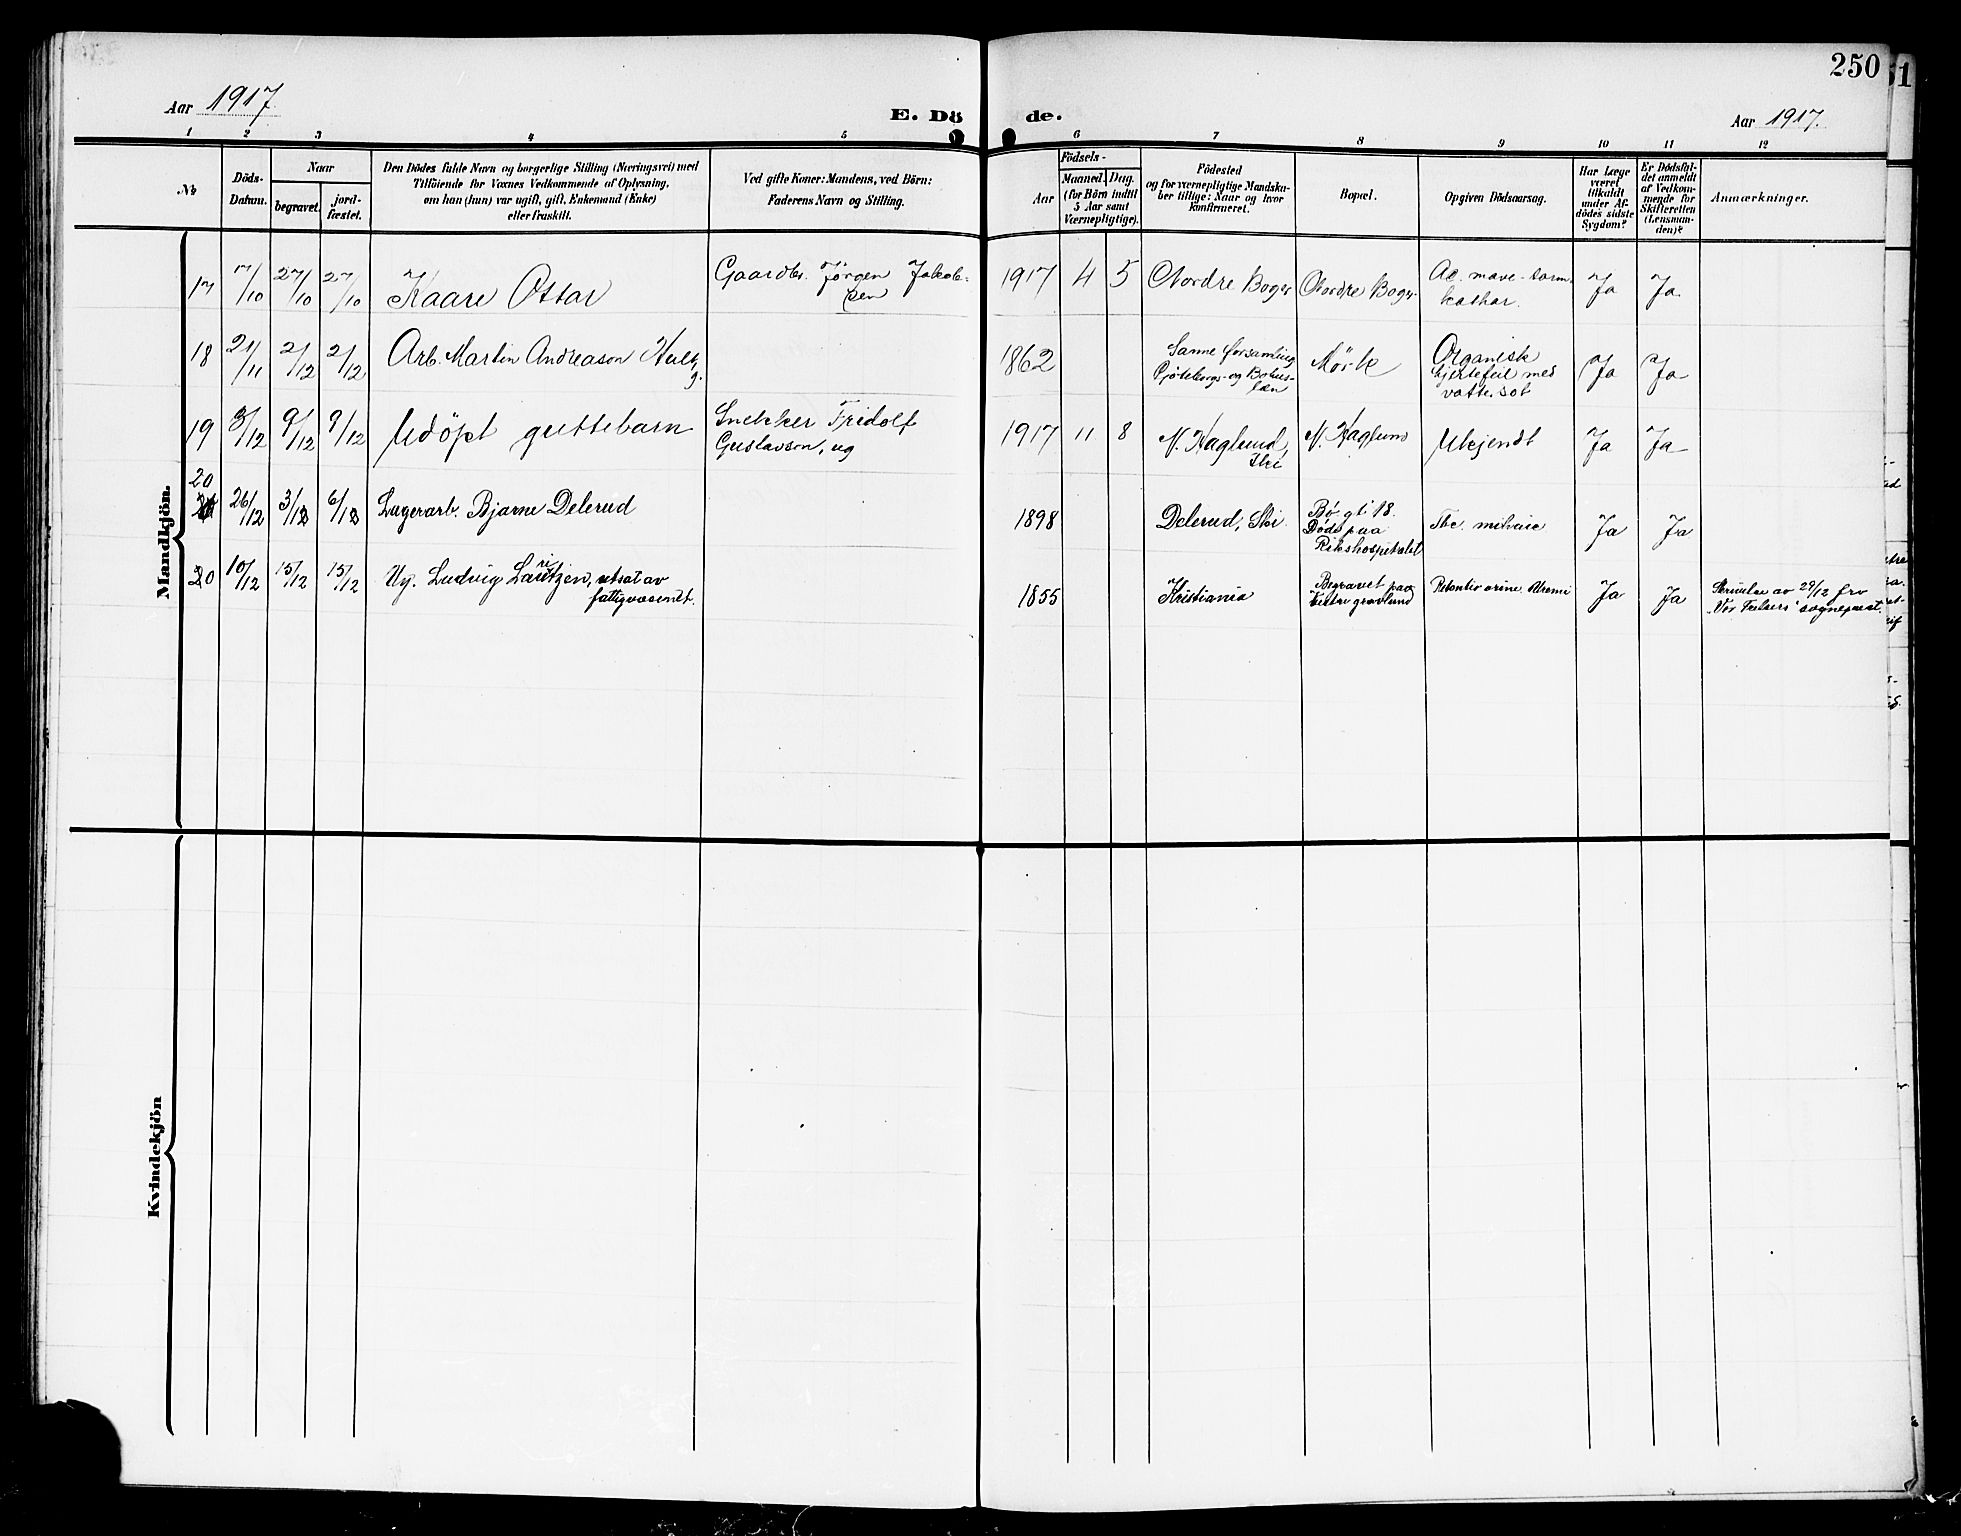 250
Aar 1917
E. Dö de.
Aar 1917.
1 2 3 4 5 6 7 8 9 10 11 12
No
Döds-
Datum.
Naar
begravet.
jord-
fæstet.
Den Dödes fulde Navn og borgerlige Stilling (Næringsvei) med
Tilföiende for Voxnes Vedkommende af Oplysning,
om han (hun) var ugift, gift, Enkemand (Enke)
eller fraskilt.
Ved gifte Koner: Mandens, ved Börn:
Faderens Navn og Stilling.
Födsels-
Aar
Maaned. Dag.
(for Börn indtil
5 Aar samt
Værnepligtige).
Födested
og for værnepligtige Mandska-
ber tillige: Naar og hvor
konfirmeret.
Bopæl.
Opgiven Dödsaarsag.
Har Læge
været
tilkaldt
under Af-
dödes sidste
Sygdom?
Er Dödsfal-
det anmeldt
af Vedkom-
mende for
Skifteretten
(Lensman-
den)?
Anmærkninger.
Mandkjön.
17 17/10 27/10 27/10 Kaare Ottar
Gaardbr. Jørgen Jakob-
sen
1917 4 5 Nordre Boger Nordre Boger
Ac. mave-tarm-
kathar.
Ja Ja
18 21/11 2/12 2/12 Arb. Martin Andreason
g.
1862
Sanne forsamling
Gjøteborgs- og Bohus-
læn
Mörk
Organisk
hjertefeil med
vattersot
Ja Ja
19 3/12 9/12 9/12 Udöpt guttebarn
Snekker Fridolf
Gustavson, ug
1917 11 8
N. Haglund,
Ski
N. Haglund
Ukjendt
Ja Ja
20
26/12 3/12 6/12 Lagerarb. Bjarne Delerud
1898 Delerud, Ski.
Bø gt. 18.
Døde paa
Rikshospitalet
Tbc. miliaie
Ja Ja
20 10/12 15/12 15/12 Ug. Ludvig Lauritzen, utsat av
fattigvæsenet.
1855 Kristiania
Begravet paa
Vestre gravlund
Retentio urine. Uremi
Ja Ja
Skrivelse av 29/12 fra
"Vor Frelsers" sogneprest.
Kvindekjön